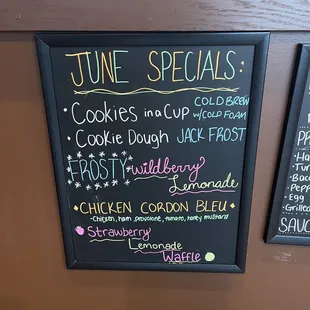 JUNE SPECIALS:
• Cookies in a Cup COLD BREW
w/COLD FOAM
• Cookie Dough JACK FROST
FROSTY wildberry
Lemonade
CHICKEN CORDON BLEU
- Chicken, ham, provolone, tomato, honey mustard
Strawberry
Lemonade
Waffle
Egg
SAUC